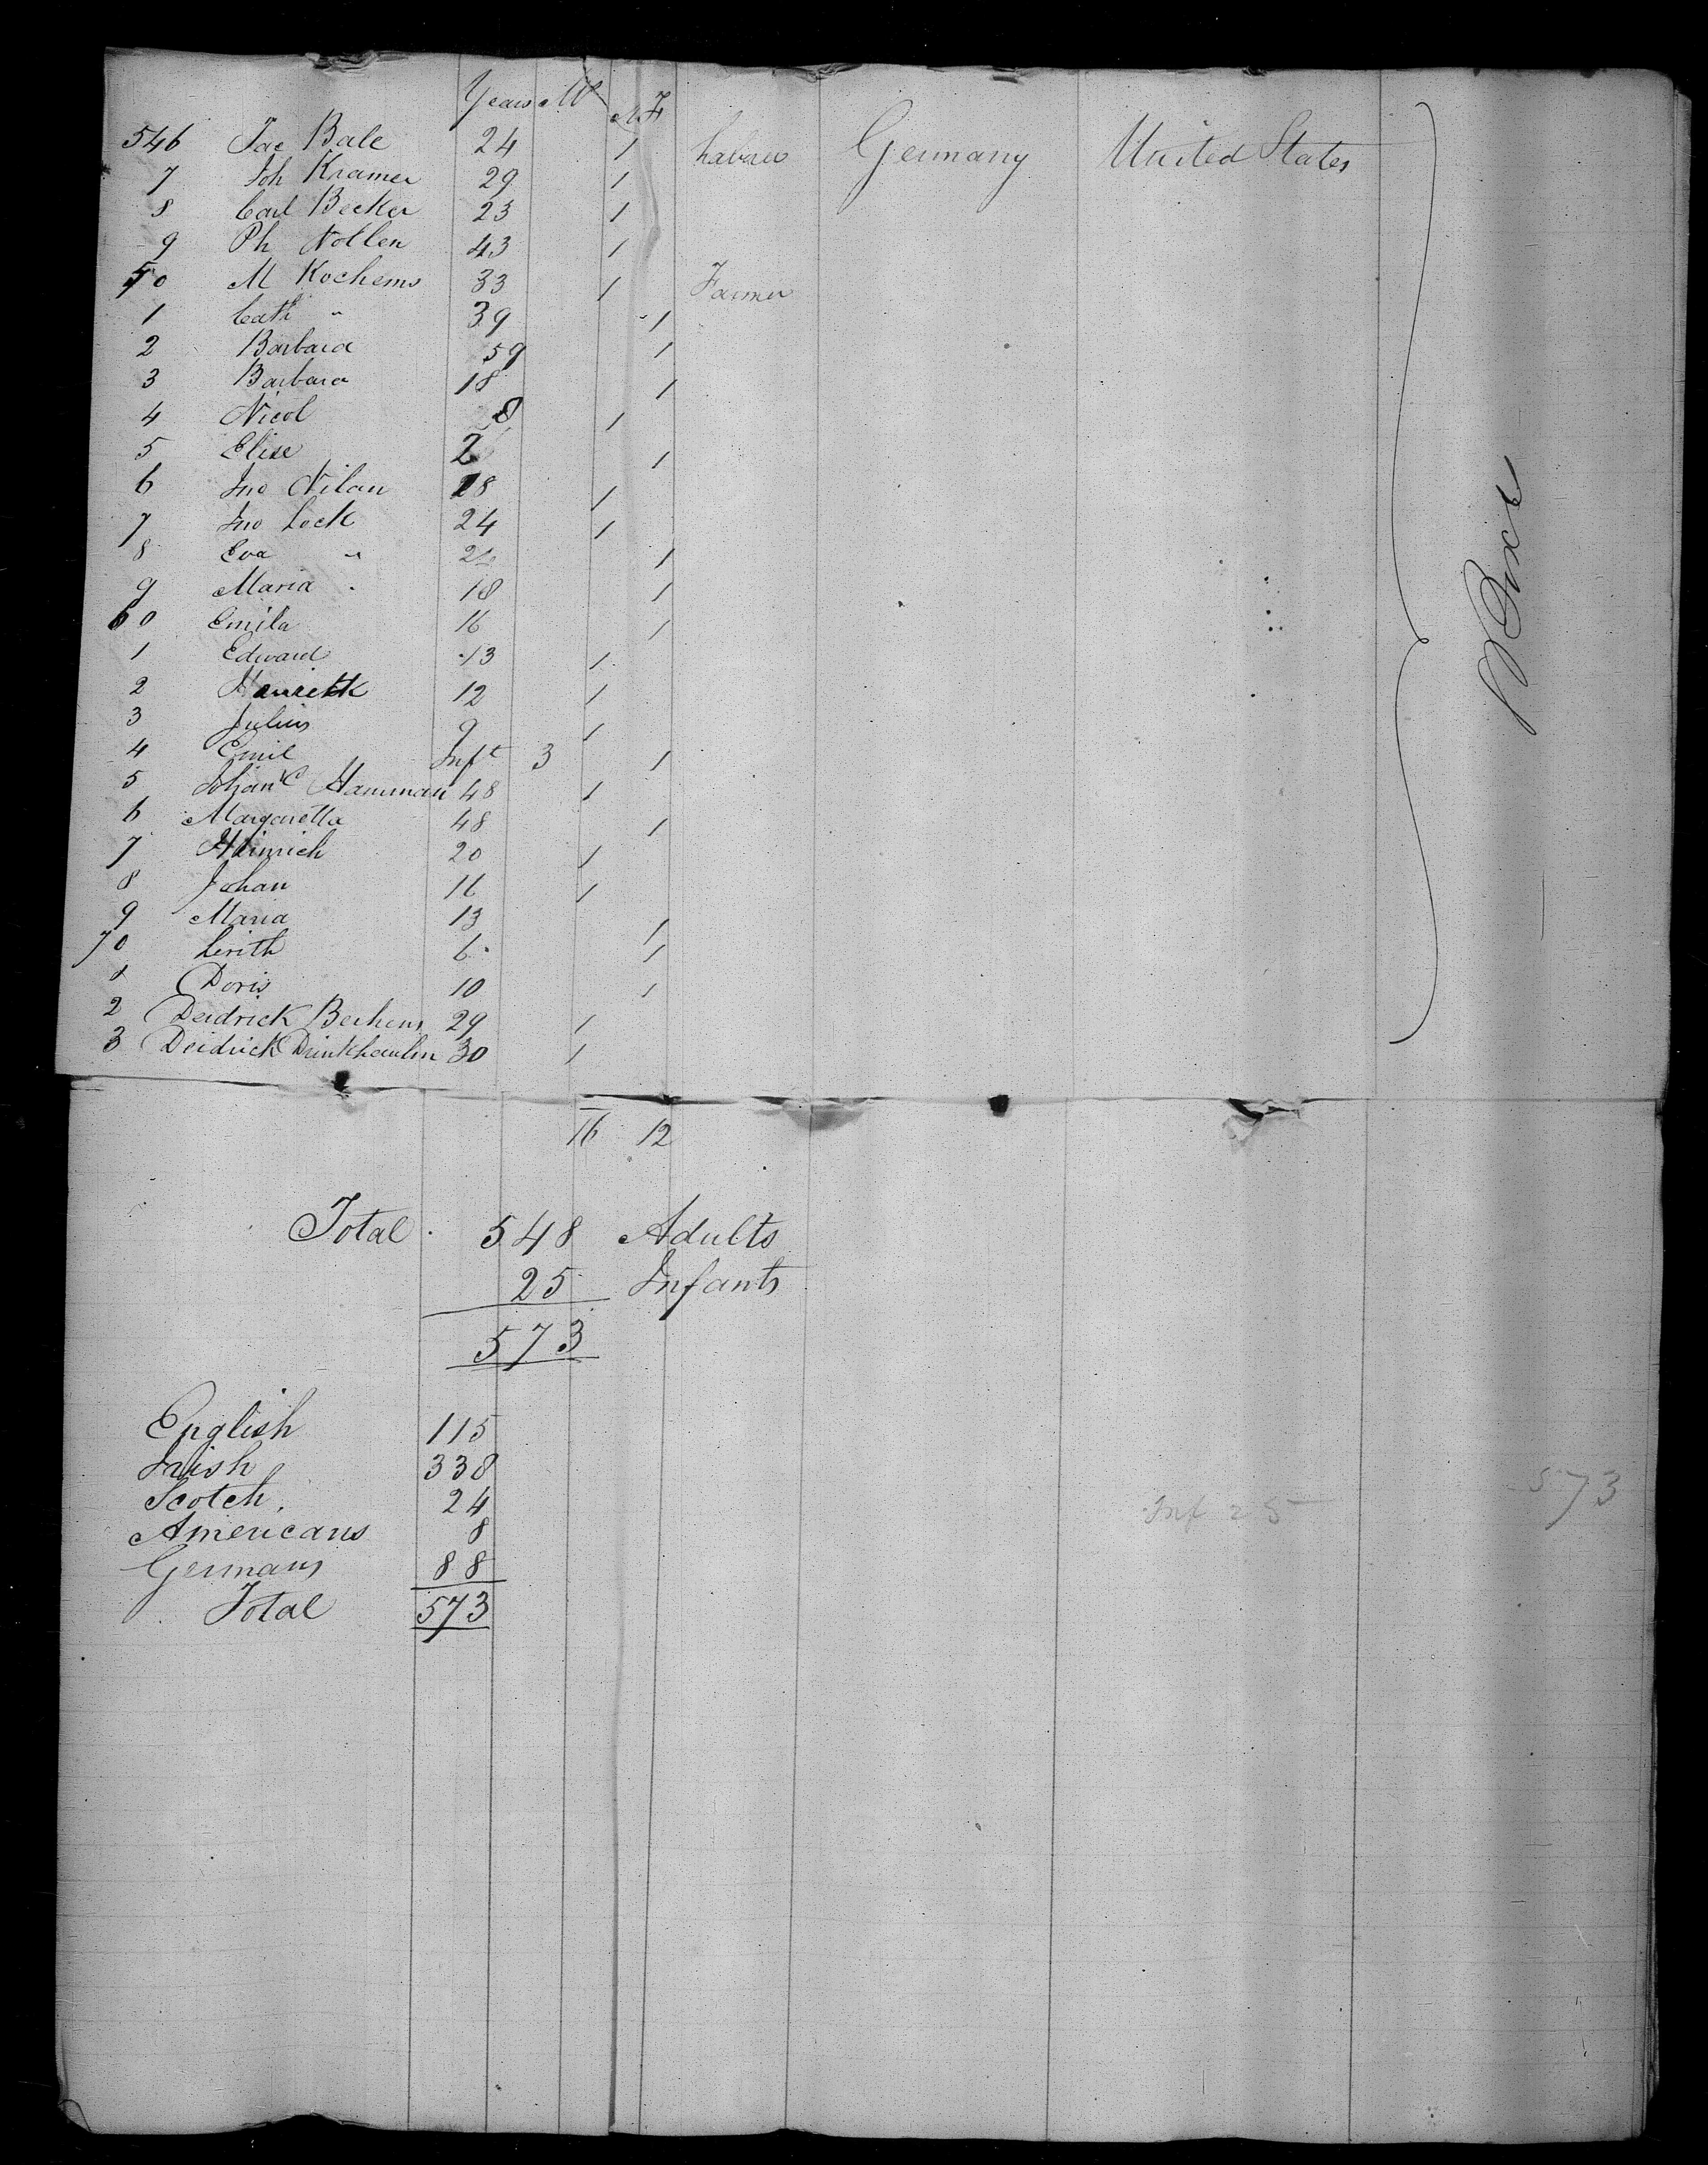 Years M M F
546 Jac Bale 24 1 Labourer Germany United States
7 Joh Kramer 29 1
8 Carl Becker 23 1
9 Ph Nollen 43 1
50 M Kochems 33 1 Farmer
1 Cath " 39 1
2 Barbara 59 1
3 Barbara 18 1
4 Nicol 8 1
5 Elise 2 1
6 Jno Nilan 28 1
7 Jno Lock 24 1
8 Eva " 1
9 Maria " 18 1
60 Emila 16 1
1 Edward 13 1
2 12 1
3 Julius 9 1
4 Emil Inft 3 1
5 Johan Hamman 48 1
6 Margaretta 48 1
7 Heinrich 20 1
8 Johan 16 1
9 Maria 13 1
70 6 1
1 Doris 10 1
2 Deidrick Berhens 29 1
3 Deidrick 30 1
16 12
Total 548 Adults
25 Infants
573
English 115
Irish 338
Scotch. 24
Americans 8
Germans 88
Total 573
Inf 25
573